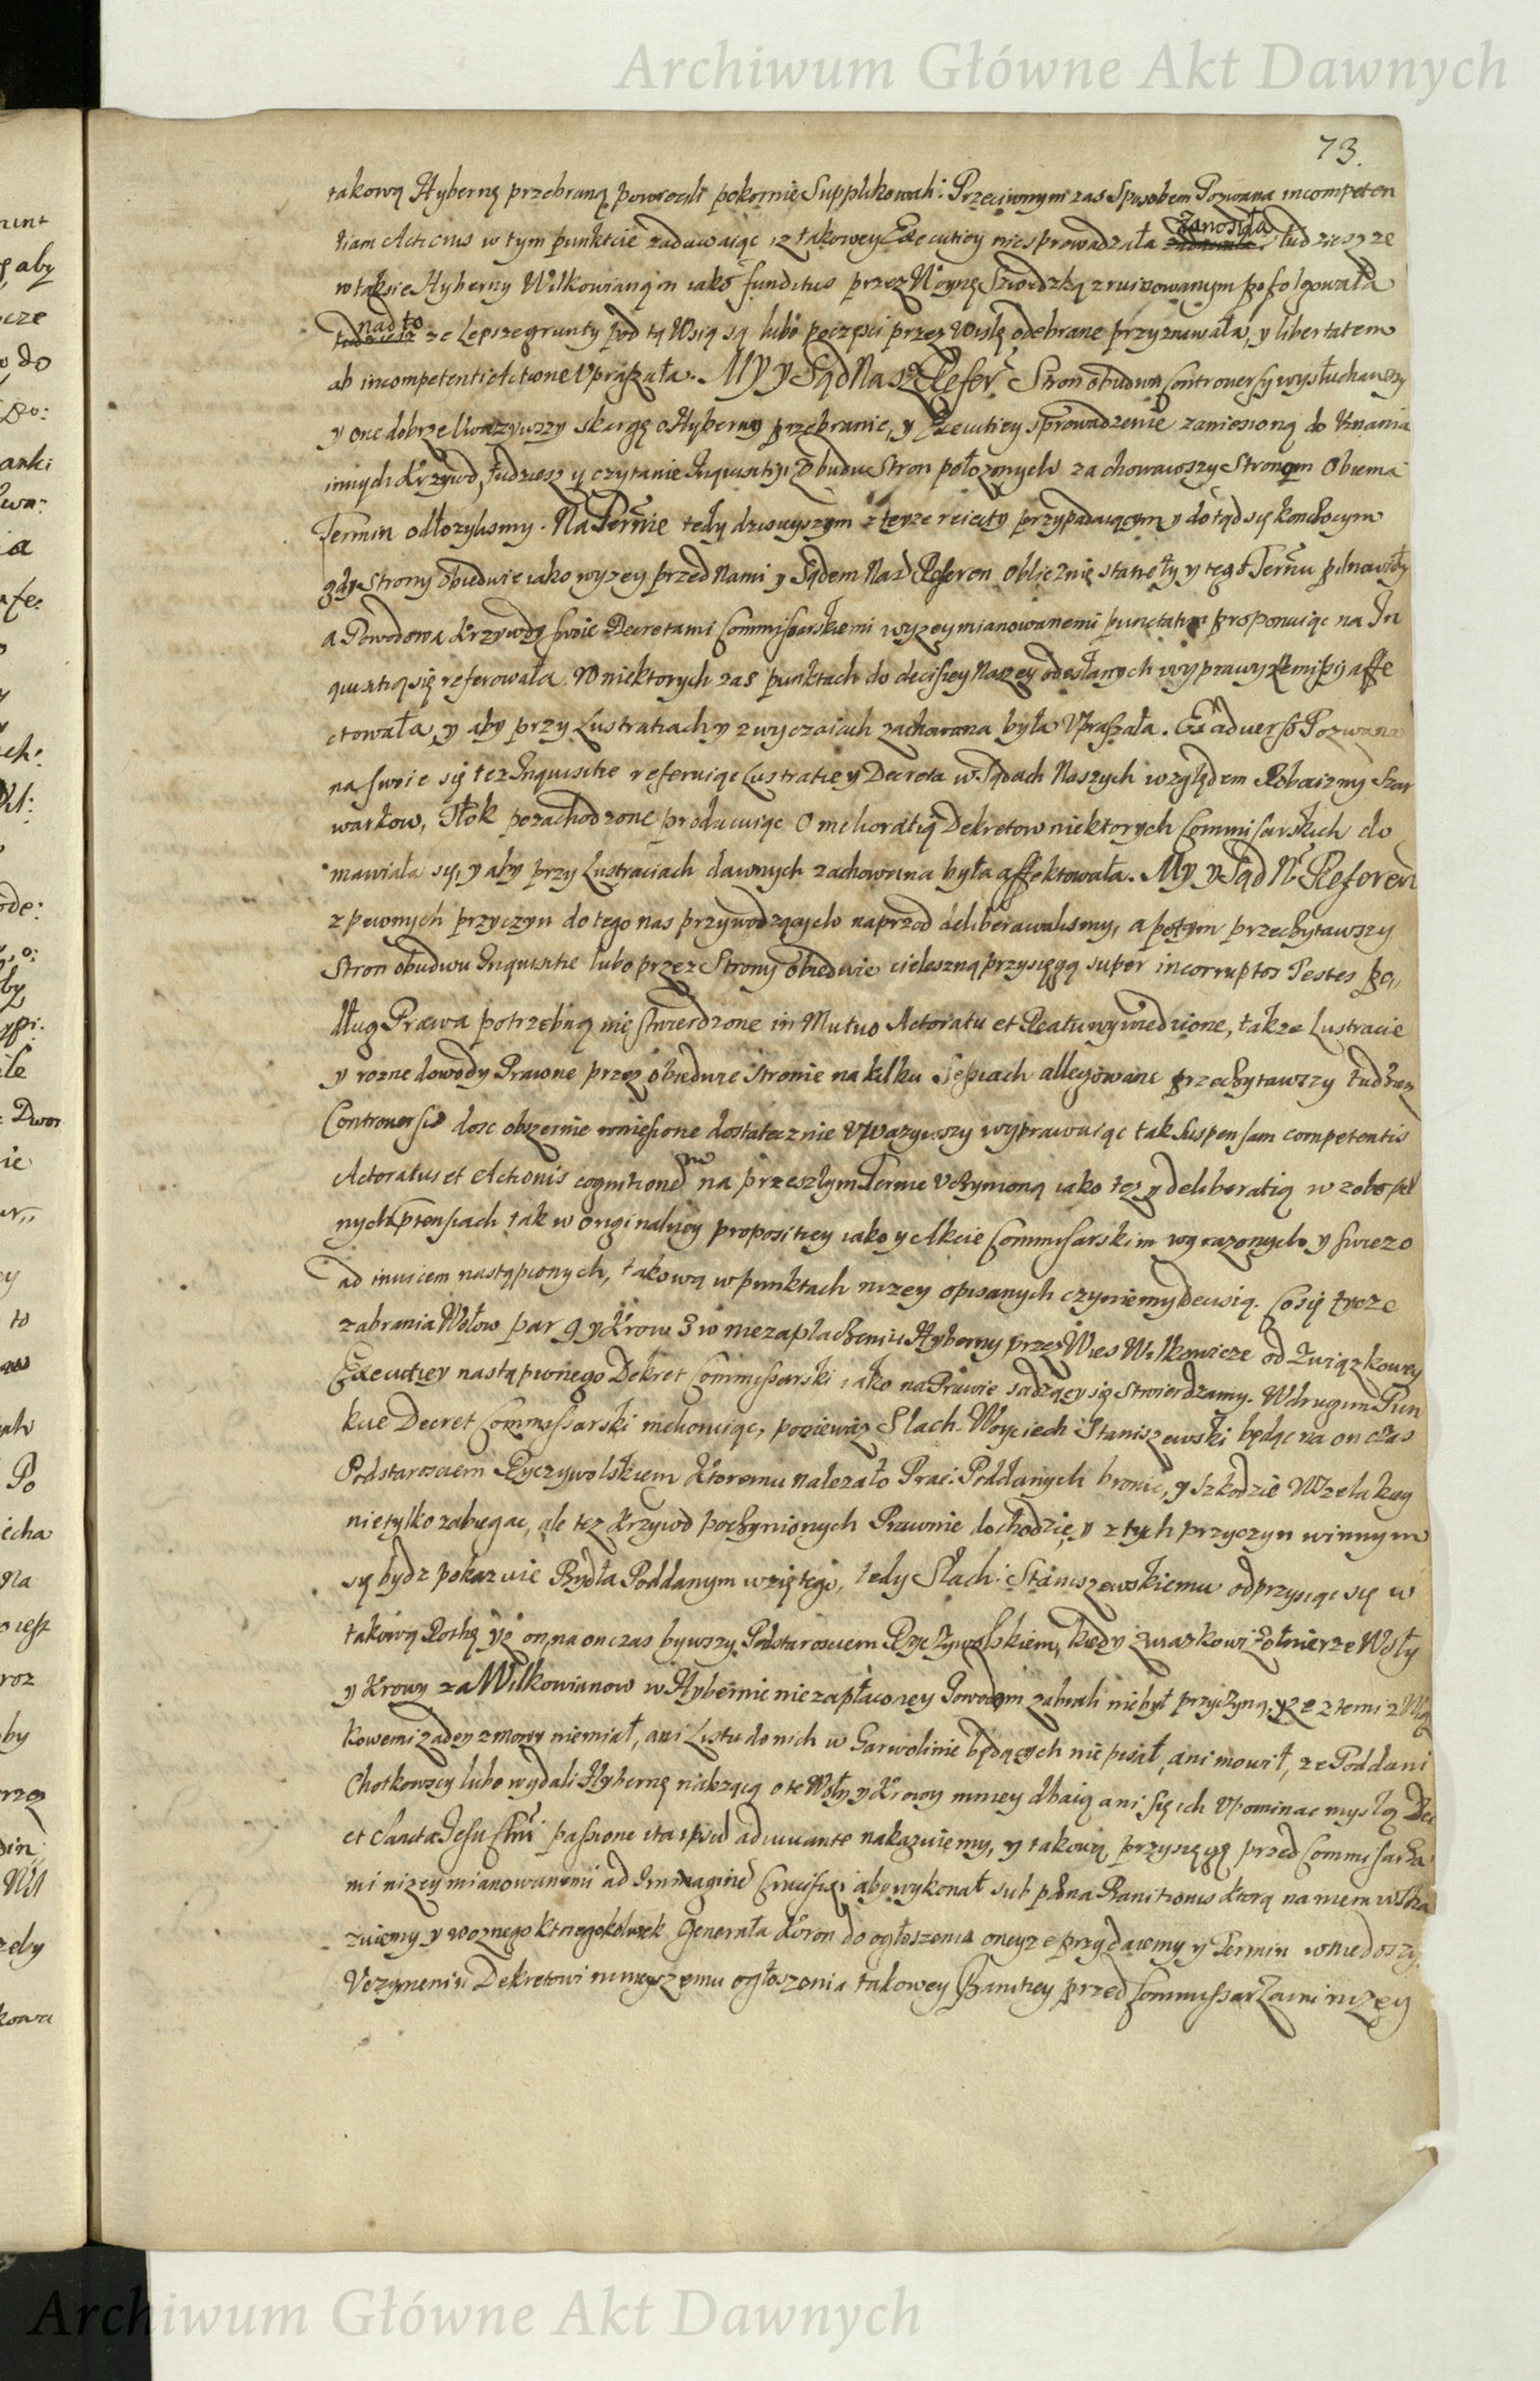 Archiwum Główne Akt Dawnych
73.
takową Hybernę przebraną powrocili pokornie Supplikowali. Przeciwnym zas Sposobem Pozwana incompeten
tiam Actionis w tym punkcie zadawaiąc iz takowey Executiey niesprowadzała zanosiła tudziesz ze
w taksie Hyberny Wilkowianom iako funditus przez Woynę Szwedzką zruinowanym pofolgowała
nad to ze Lepsze grunty pod tą Wsią są lubo poczęsci przez Wisłę odebrane przyznawała, y libertatem
ab incompetenti Actione Upraszała. My y Sąd Nasz Refer Stron obudwu Controversy wysłuchawszy
y one dobrze skargę o Hyberny przebranie, y Executiey sprowadzenie zaniesioną do Uznania
innych Krzywd, tudziesz y czytanie Inquisitiy Obudwu Stron połozonych zachowawszy Stronom Obiema
Termin odłozylismy. Na Termie tedy dzisieyszym z teyze reiecty przypadaiącym y dotąd się kończocym
gdy Strony obiedwie iako wyzey przed Nami y Sądem Nasz Referen Oblicznie stanęły y tego Termu pilnowały
a Powodowa Krzywdy swoie Decretami Commissarskiemi wyzeymianowanemi punctatim proponuiąc na In
quisitią się referowała. W niektorych zas punktach do decisiey Naszey odesłanych wyprawy Remissij affe
ctowała, y aby przy Lustratiach y zwyczaiach zachowana była Upraszała. Ex adverso Pozwana
na swoie się tez Inquisitie referuiąc Lustratie y Decreta w Sądach Naszych względem Robocizny Szar
warkow, Tłok pozachodzone producuiąc O melioratią Dekretow niektorych Commissarskich do
mawiała się, y aby przy Lustraciach dawnych zachowana była affektowała. My y Sąd Nr Referen
z pewnych przyczyn do tego nas przywodzących naprzod deliberowalismy, a potym przeczytawszy
Stron obudwu Inquisitie lubo przez Strony obiedwie cieleszną przysięgą super incorruptos Testes po
dług Prawa potrzebną nie stwierdzone in Mutuo Actoratu et Reatu wywiedzione, takze Lustracie
y rozne dowody Prawne przez obiedwie Stronie na kilku Sessiach allegowane przeczytawszy tudziesz
Controversie dosc obszernie wniesione dostatecznie Uwazywszy wyprawuiąc tak Suspensam competentis
Actoratus et Actionis cognitionem na przeszlym Termie Uczynioną iako tez y deliberatią w zobopol
nych Ptensiach tak w originalney propositiey iako y Akcie Commissarskim wyrazonych y swiezo
ad invicem nastąpionych, takową w punktach nizey opisanych czyniemy Decisią. Co się tycze
zabrania Wołow par 9 y Krow 3 w niezapłaceniu Hyberny przez Wies Wilkowicze od Związkowey
Executiey nastąpionego Dekret Commissarski iako na Prawie sadzący się Stwierdzamy. W drugim Pun
kcie Decret Commissarski meliouiąc, poniewasz Slach. Woyciech Staniszewski będąc na on czas
Podstarosciem Ryczywolskiem Ktoremu nalezało Prac: Poddanych bronic, y szkodzie Wszelakiey
nie tylko zabiegac, ale tez Krzywd poczynionych Prawnie dochodzic, y z tych przyczyn winnym
się bydz pokazuie Bydła Poddanym wziętego, tedy Slach. Staniszewskiemu odprzysiąc się w
takową Rothę yz on, na on czas bywszy Podstarosciem Ryczywolskiem, kiedy zwiazkowi Zołnierze Woły
y Krowy za Wilkowianow w Hybernie niezapłaconey Powodom zabrali niebył przyczyną, yze z temi zwiąs
kowemi zadney zmowy niemiał, ani Listu do nich w Garwolinie będących nie pisał, ani mowił, ze Poddani
Chotkowscy lubo wydali Hybernę niebrzącą o te Woły y Krowy mniey dbaią ani się ich Upominac myslą Dei
et Sancta Jesu Chri passione ita ipsum adiuuante nakazuiemy, y takową przysięgę przed Commissarza
mi nizeymianowanemi ad Immaginem Crucifixi aby wykonał sub pæna Banitionis Ktorą na niem wska
zuiemy y woznego Ktoregokolwiek Generała Koron do ogłoszenia oneyze przydaiemy y Termin w niedoszy
Uczynieniu Dekretowi ninieyszemu ogłoszenia takowey Banitiey przed Commissarzami nizey
Archiwum Główne Akt Dawnych